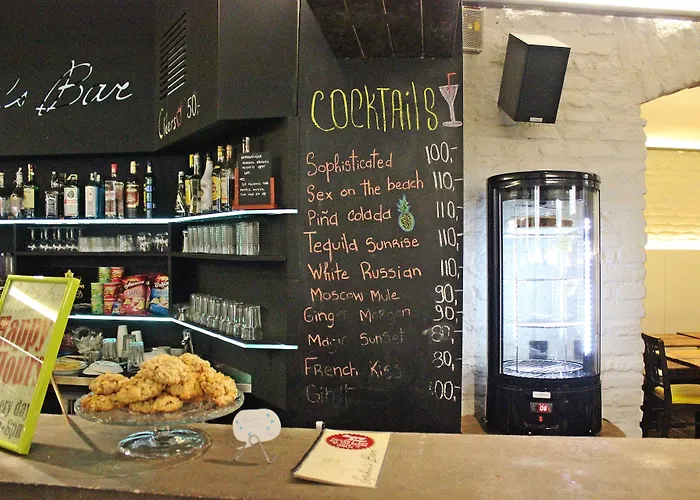 's Bar
Cheers 50,-
COCKTAILS
Sophisticated 100,-
Sex on the beach 110,-
Piña colada 110,-
Tequila Sunrise 110,-
White Russian 110,-
Moscow Mule 90,-
Ginger Morgan 90,-
Magic Sunset 80,-
French Kiss 80,-
100,-
Happy
Hours
ery day